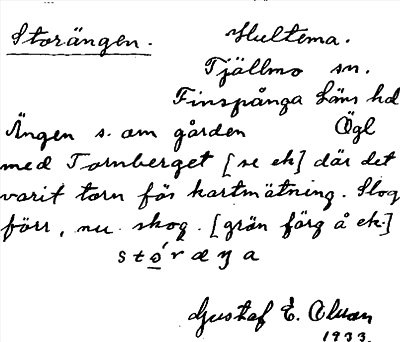 Storängen. Hultema.
Tjällmo sn.
Finspånga läns hd
Ängen s. om gården Ögl
med Tornberget [se ek] där det
varit torn för kartmätning. Slog
förr, nu skog. [grön färg å ek.]
stǿ̱ræŋa
Gustaf E.
1933.